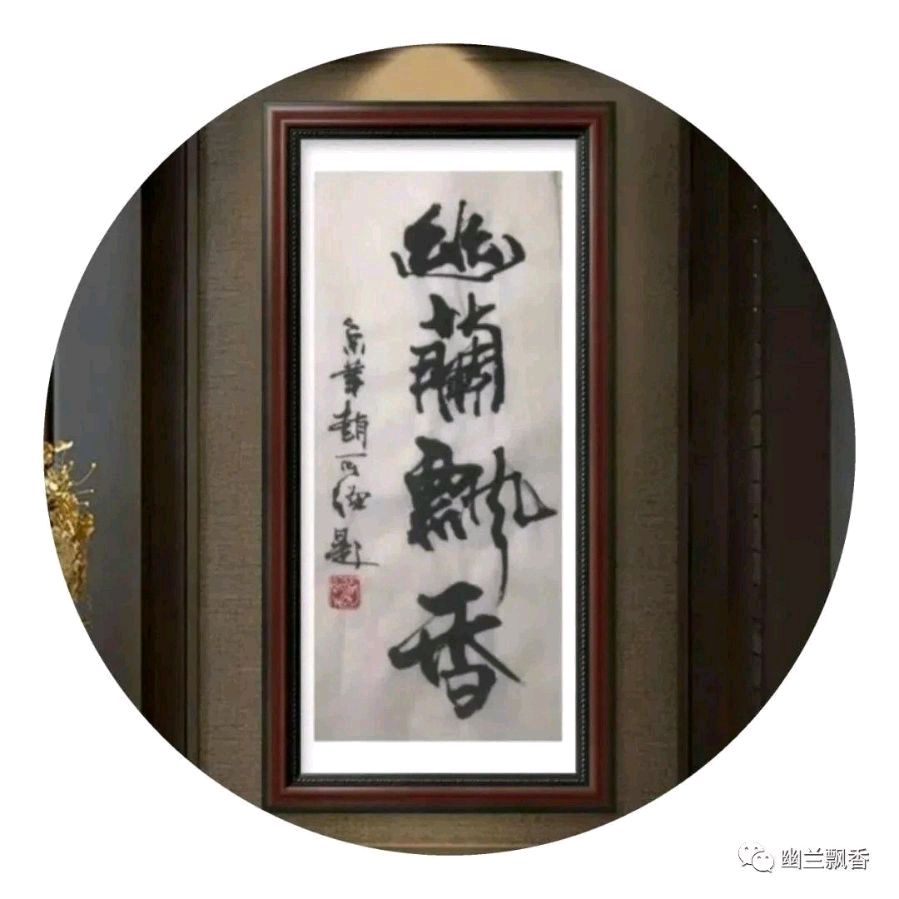 幽蘭飄香
京華趙題
幽兰飘香